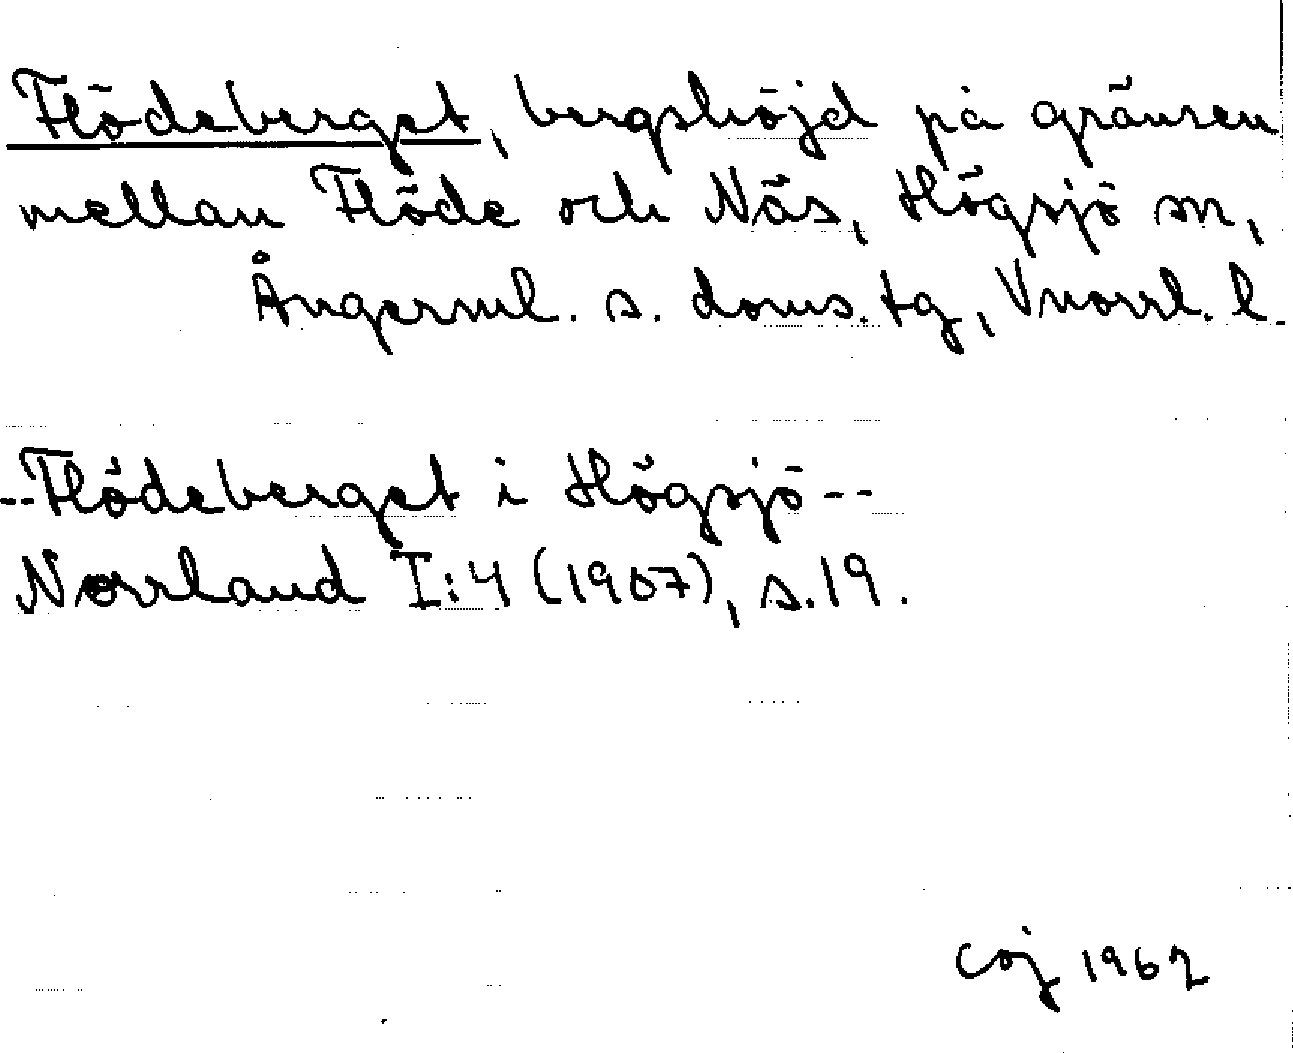 Flödeberget, bergshöjd på gränsen
mellan Flöde och Näs, Högsjö sn,
Ångerml. s. doms. tg, Vnorrl. l.
--Flödeberget i Högsjö--
Norrland I:4 (1907), s. 19.
COJ 1962